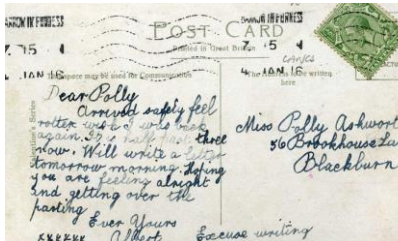 BARROW IN FURNESS
BARROW IN FURNESS
POST CARD
Printed in Great Britain
7. 15
7. 15
4 JAN 16
4 JAN 16
This space may be used for Communication
The Address to be written
here
Dear Polly
Arrived safely feel
rotter wish I was back
again. It's half past three
now. Will write a letter
tomorrow morning. Hoping
you are feeling alright
and getting over the
parting
Ever Yours
xxxxxx Albert
Excuse writing
Miss Polly Ashwort
56 Brookhouse La
Blackburn
Lancs
Valentine's Series